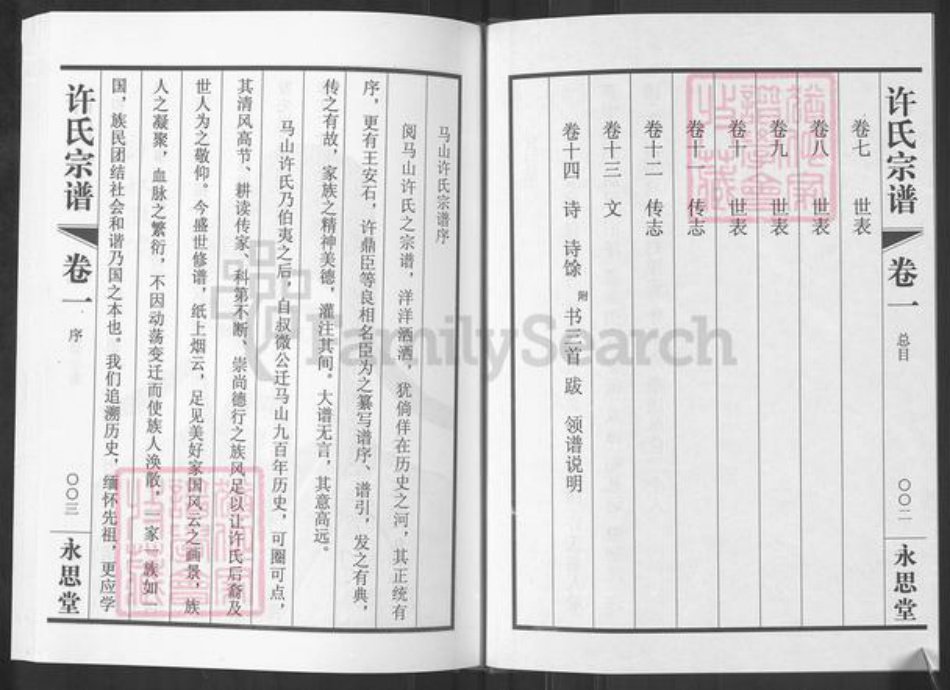 许氏宗谱
卷一
总目
〇〇二
永思堂
卷七 世表
卷八 世表
卷九 世表
卷十 世表
卷十一 传志
卷十二 传志
卷十三 文
卷十四 诗 诗馀 附 书三首 跋 领谱说明
马山许氏宗谱序
阅马山许氏之宗谱，洋洋洒洒，犹倘佯在历史之河，其正统有
序，更有王安石，许鼎臣等良相名臣为之纂写谱序、谱引，发之有典，
传之有故，家族之精神美德，灌注其间。大谱无言，其意高远。
马山许氏乃伯夷之后，自叔微公迁马山九百年历史，可圈可点，
其清风高节、耕读传家、科第不断、崇尚德行之族风足以让许氏后裔及
世人为之敬仰。今盛世修谱，纸上烟云，足见美好家国风云之画景，族
人之凝聚，血脉之繁衍，不因动荡变迁而使族人涣散，一家一族如一
国，族民团结社会和谐乃国之本也。我们追溯历史，缅怀先祖，更应学
许氏宗谱
卷一
序
〇〇三
永思堂
FamilySearch